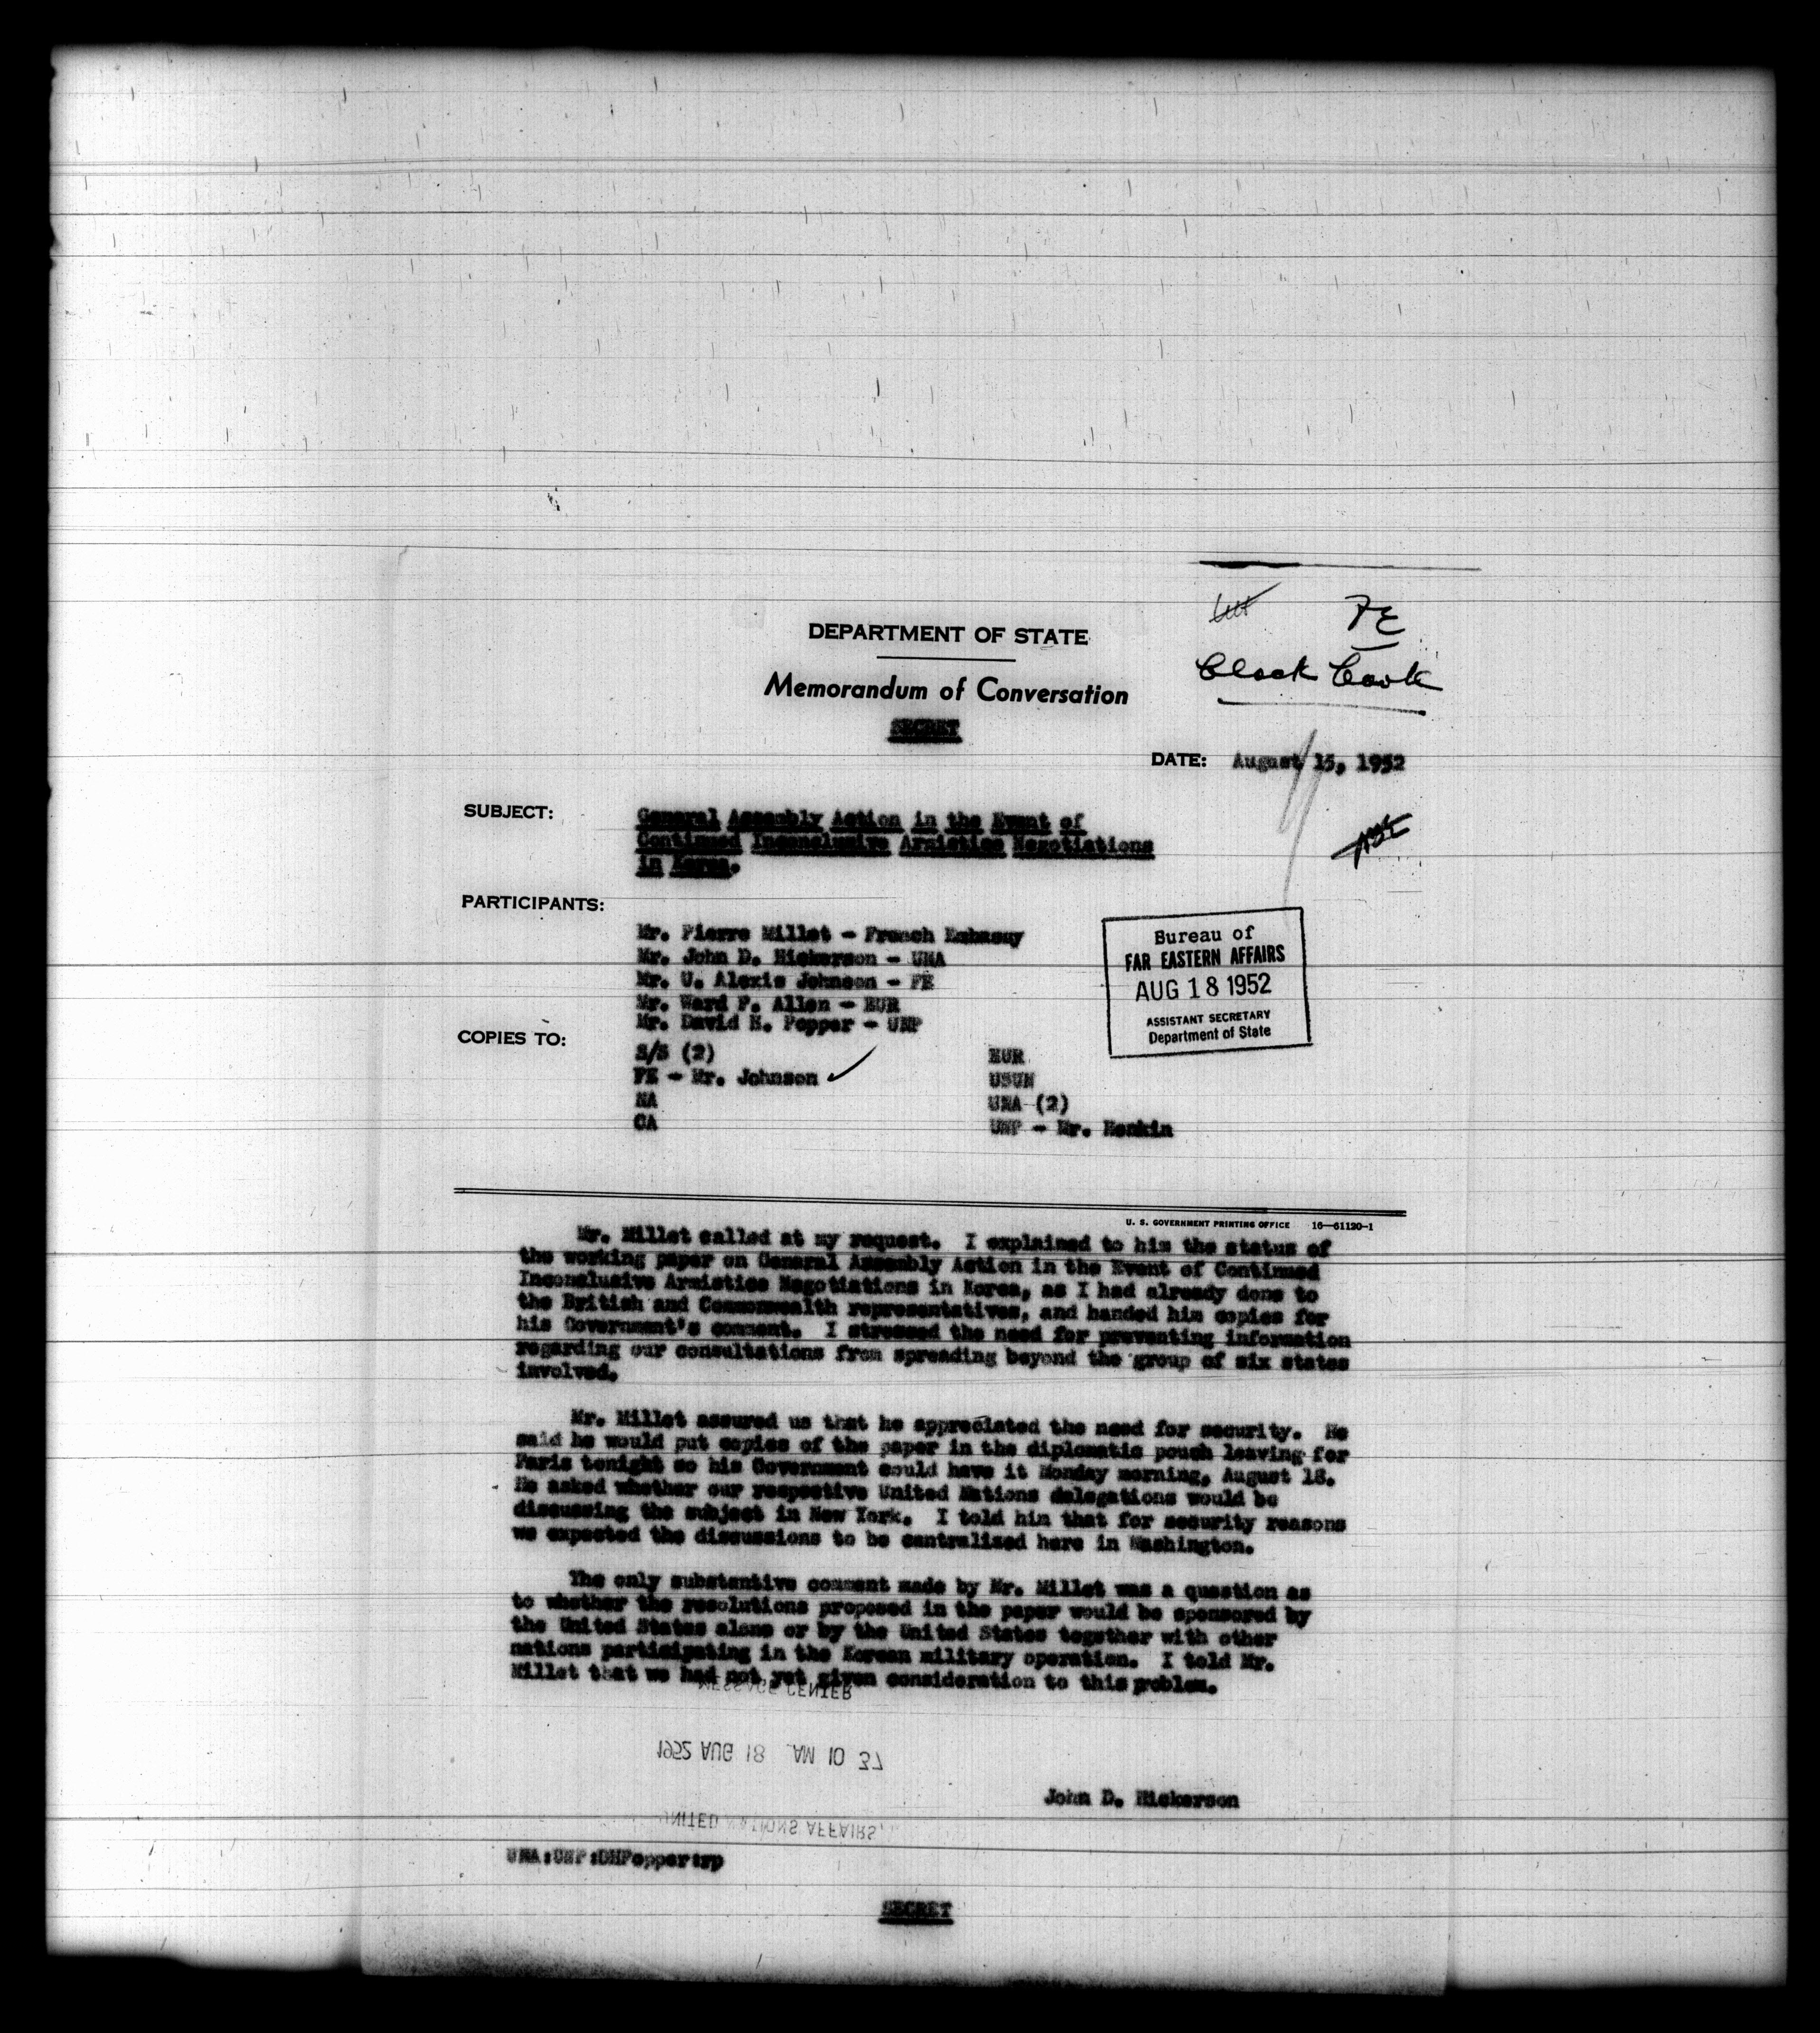 FE
Black Book
DEPARTMENT OF STATE
Memorandum of Conversation
SECRET
DATE: August 15, 1952
SUBJECT: General Assembly Action in the Event of
Continued Inconclusive Armistice Negotiations
in Korea.
PARTICIPANTS:
Mr. Pierre Millet - French Embassy
Mr. John D. Hickerson - UNA
Mr. U. Alexis Johnson - FE
Mr. Ward P. Allen - EUR
Mr. David H. Popper - UNP
Bureau of
FAR EASTERN AFFAIRS
AUG 18 1952
ASSISTANT SECRETARY
Department of State
COPIES TO:
S/S (2) EUR
FE - Mr. Johnson ✓ USUN
NA UNA (2)
CA UNP - Mr. Henkin
U. S. GOVERNMENT PRINTING OFFICE 16—61120-1
Mr. Millet called at my request. I explained to him the status of
the working paper on General Assembly Action in the Event of Continued
Inconclusive Armistice Negotiations in Korea, as I had already done to
the British and Commonwealth representatives, and handed him copies for
his Government's comment. I stressed the need for preventing information
regarding our consultations from spreading beyond the group of six states
involved.
Mr. Millet assured us that he appreciated the need for security. He
said he would put copies of the paper in the diplomatic pouch leaving for
Paris tonight so his Government could have it Monday morning, August 18.
He asked whether our respective United Nations delegations would be
discussing the subject in New York. I told him that for security reasons
we expected the discussions to be centralized here in Washington.
The only substantive comment made by Mr. Millet was a question as
to whether the resolutions proposed in the paper would be sponsored by
the United States alone or by the United States together with other
nations participating in the Korean military operation. I told Mr.
Millet that we had not yet given consideration to this problem.
MESSAGE CENTER
1952 AUG 18 AM 10 37
John D. Hickerson
UNITED NATIONS AFFAIRS
UNA:UNP:DHPopper:rp
SECRET